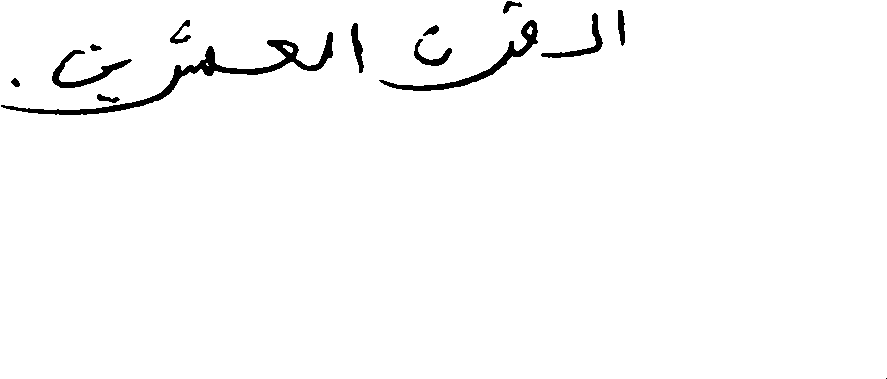 القرن العشرين .